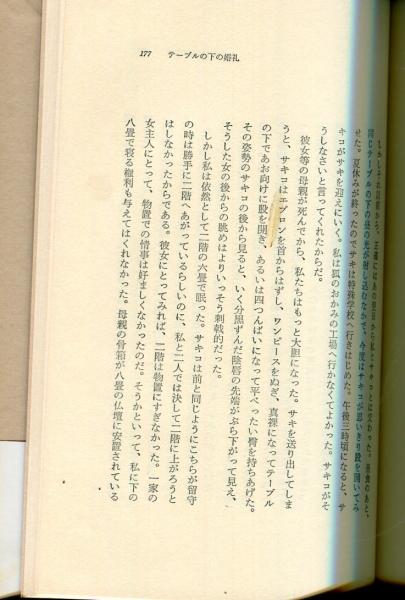 177 テーブルの下の婚礼
せた。夏休みが終ったのでサキは特殊学校へ行きはじめた。午後三時頃になると、サ
キコがサキを迎えにいく。私は狐のおかみの工場へ行かなくてよかった。サキコがそ
うしなさいと言ってくれたからだ。
彼女等の母親が死んでから、私たちはもっと大胆になった。サキを送り出してしま
うと、サキコはエプロンを首からはずし、ワンピースをぬぎ、真裸になってテーブル
の下であお向けに股を開き、あるいは四つんばいになって平べったい臀を持ちあげた。
その姿勢のサキコの後から見ると、いく分黒ずんだ陰唇の先端がぶら下がって見え、
そうした女の後からの眺めはよりいっそう刺戟的だった。
しかし私は依然として二階の六畳で眠った。サキコは前と同じようにこちらが留守
の時は勝手に二階へあがっているらしいのに、私と二人では決して二階に上がろうと
はしなかったからである。彼女にとってみれば、二階は物置にすぎなかった。一家の
女主人にとって、物置での情事は好ましくなかったのだ。そうかといって、私に下の
八畳で寝る権利も与えてはくれなかった。母親の骨箱が八畳の仏壇に安置されている